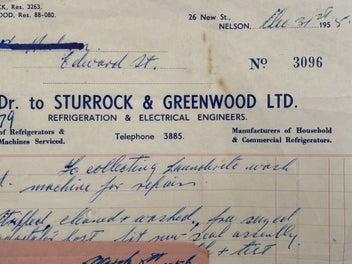 CK, Res. 3263.
WOOD, Res. 88-080.
26 New St.,
NELSON, Dec 31st 195
Edward St.
No 3096
Dr. to STURROCK & GREENWOOD LTD.
79
REFRIGERATION & ELECTRICAL ENGINEERS.
of Refrigerators &
Machines Serviced.
Telephone 3885.
Manufacturers of Household
& Commercial Refrigerators.
To collecting wash
machine for repairs
cleaned & washed, free
new seal assembly
& test